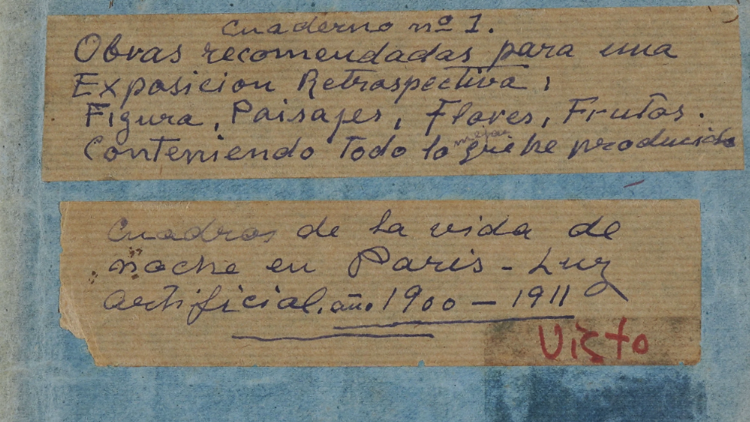 Cuaderno nº 1.
Obras recomendadas para una
Exposicion Retrospectiva,
Figura, Paisajes, Flores, Frutos.
mejor
Conteniendo Todo lo que he producido
Cuadros de la vida de
noche en Paris - Luz
artificial, año 1900 - 1911
Visto